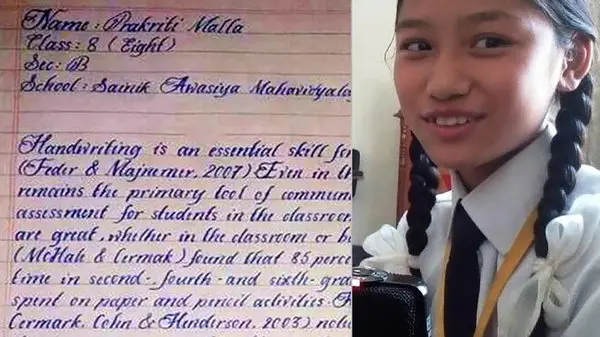 Name : Prakriti Malla
Class : 8 ( Eight )
Sec : B
School : Sainik Awasiya Mahavidyalay
Handwriting is an essential skill for
(Feder & Majnemer, 2007) Even in th
remains the primary tool of commun
assessment for students in the classroom
are great, whether in the classroom or b
(McHale & Cermak) found that 85 perce
time in second-, fourth- and sixth-gra
spent on paper and pencil activities.
Cermark, Cohn & Henderson, 2003) note